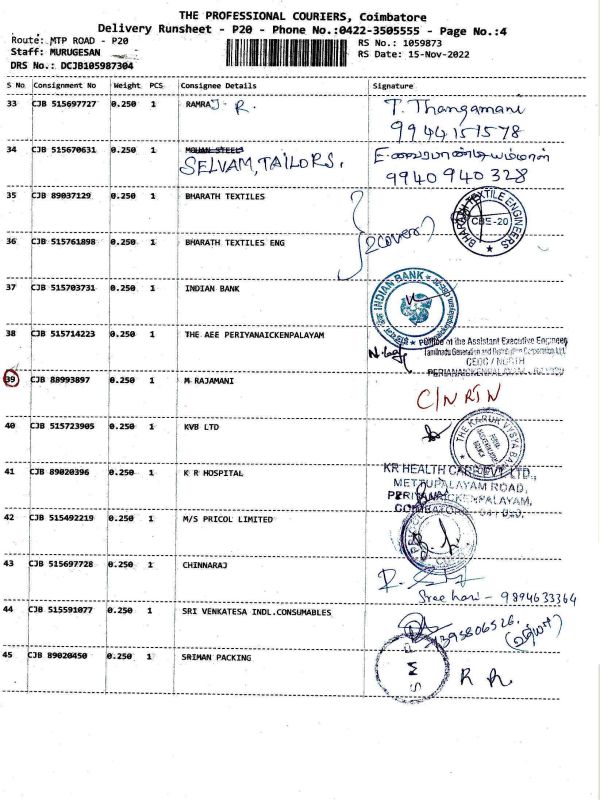 THE PROFESSIONAL COURIERS, Coimbatore
Delivery Runsheet - P20 - Phone No.:0422-3505555 - Page No.:4
Route: MTP ROAD - P20
RS No.: 1059873
Staff: MURUGESAN
RS Date: 15-Nov-2022
DRS No.: DCJB105987304
S No Consignment No Weight PCS Consignee Details Signature
33 CJB 515697727 0.250 1 RAMRAJ R. T. Thangamani
9944151578
34 CJB 515670631 0.250 1 MOHAN STEELS
SELVAM, TAILORS.
9940940328
35 CJB 89037129 0.250 1 BHARATH TEXTILES
BHARATH TEXTILE ENGINEERS CBE-20
36 CJB 515761898 0.250 1 BHARATH TEXTILES ENG
2 cover
37 CJB 515703731 0.250 1 INDIAN BANK
INDIAN BANK
38 CJB 515714223 0.250 1 THE AEE PERIYANAICKENPALAYAM
Office of the Assistant Executive Engineer
Tamilnadu Generation and Distribution Corporation Ltd.
CEDC / NORTH
39 CJB 88993897 0.250 1 M RAJAMANI C/N RTN
40 CJB 515723905 0.250 1 KVB LTD
THE KARUR VYSYA BANK
41 CJB 89020396 0.250 1 K R HOSPITAL
KR HEALTH CARE PVT. LTD.,
METTUPALAYAM ROAD,
PERIYANAICKENPALAYAM,
42 CJB 515492219 0.250 1 M/S PRICOL LIMITED
43 CJB 515697728 0.250 1 CHINNARAJ
Sree hari - 9894633364
44 CJB 515591077 0.250 1 SRI VENKATESA INDL.CONSUMABLES
45 CJB 89020450 0.250 1 SRIMAN PACKING
S M P